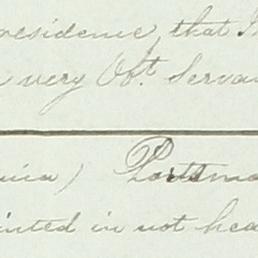 residence, that I
very Obt. Servan
nia) Portsmo
inted in not hea